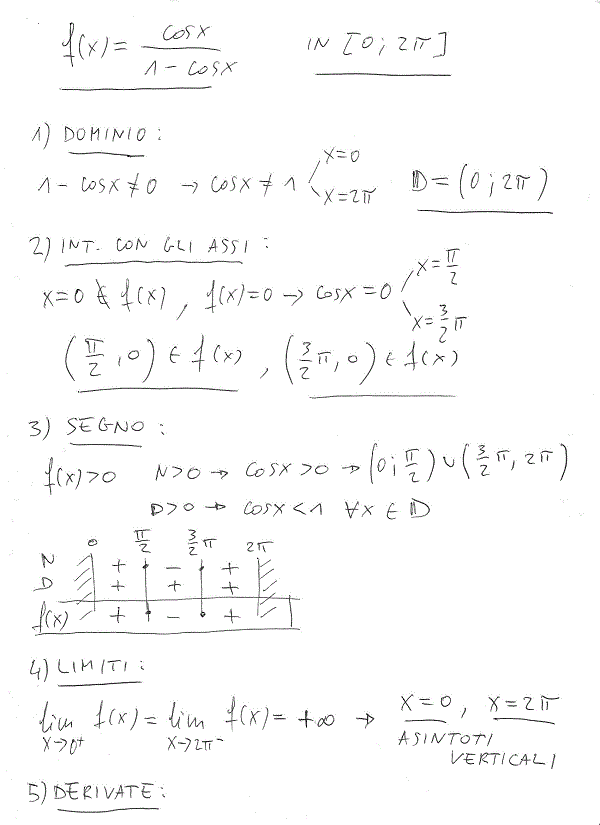 f(x) = cosx / (1 - cosx)   IN [0; 2π]
1) DOMINIO:
1 - cosx ≠ 0 → cosx ≠ 1   x=0   x=2π   D = (0; 2π)
2) INT. CON GLI ASSI:
x=0 ∉ f(x), f(x)=0 → cosx=0   x=π/2   x=3/2 π
(π/2, 0) ∈ f(x), (3/2 π, 0) ∈ f(x)
3) SEGNO:
f(x)>0   N>0 → cosx>0 → (0; π/2) ∪ (3/2 π, 2π)
D>0 → cosx<1 ∀x ∈ D
0   π/2   3/2 π   2π
N   +   -   +
D   +   +   +
f(x)   +   -   +
4) LIMITI:
lim x→0⁺ f(x) = lim x→2π⁻ f(x) = +∞ → x=0, x=2π
ASINTOTI
VERTICALI
5) DERIVATE: